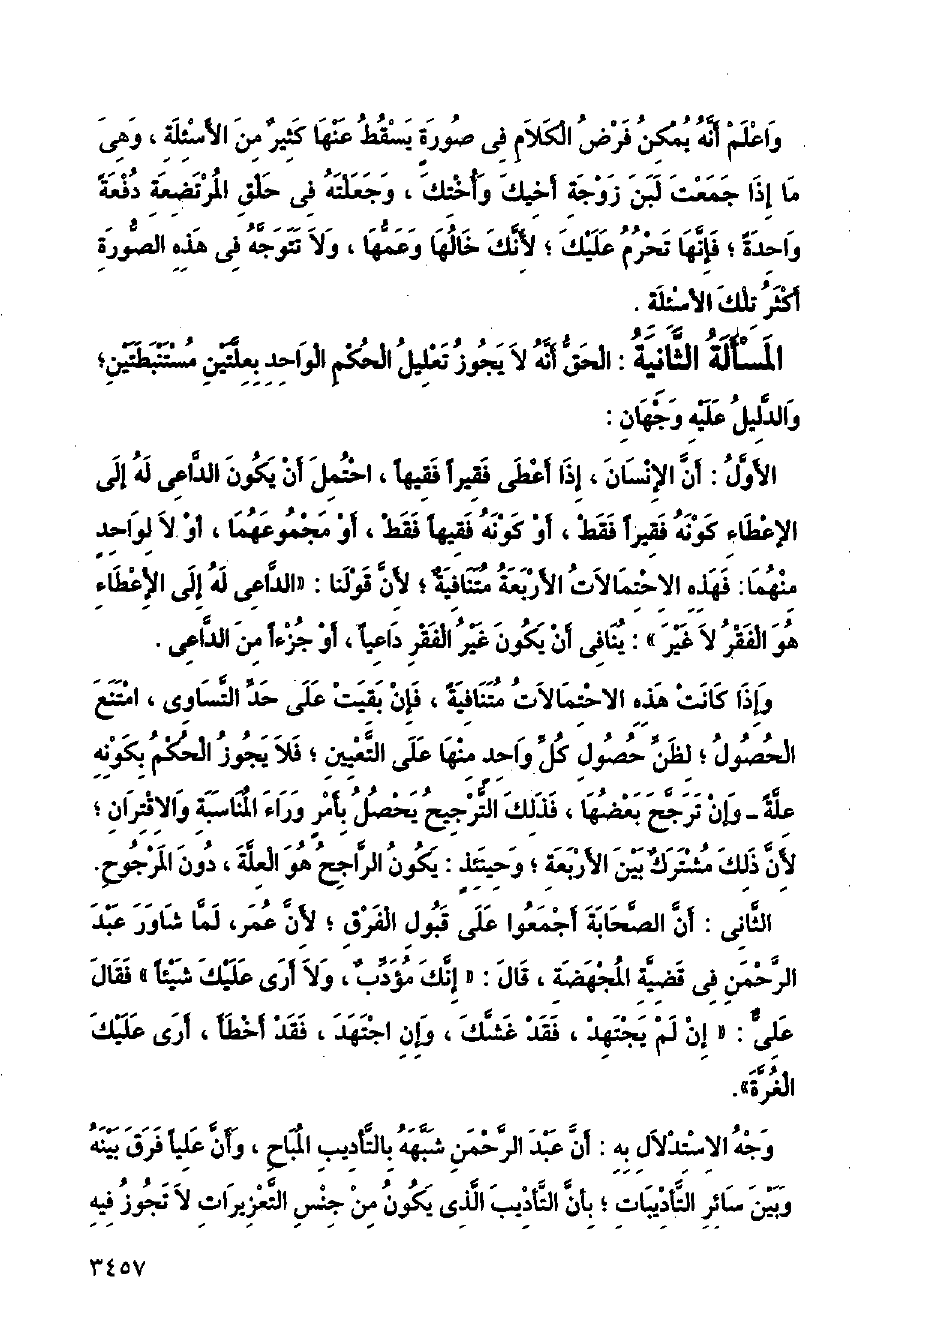 وَاعْلَمْ أَنَّهُ يُمْكِنُ فَرْضُ الْكَلَامِ فِى صُورَةٍ يَسْقُطُ عَنْهَا كَثِيرٌ مِنَ الأَسْئِلَةِ ، وَهِىَ
مَا إِذَا جَمَعْتَ لَبَنَ زَوْجَةِ أَخِيكَ وَأُخْتِكَ ، وَجَعَلْتَهُ فِى حَلْقِ الْمُرْتَضِعَةِ دُفْعَةً
وَاحِدَةً ؛ فَإِنَّهَا تَحْرُمُ عَلَيْكَ ؛ لأَنَّكَ خَالُهَا وَعَمُّهَا ، وَلاَ تَتَوَجَّهُ فِى هَذِهِ الصُّورَةِ
أَكْثَرُ تِلْكَ الأَسْئِلَةِ .
الْمَسْأَلَةُ الثَّانِيَةُ : الْحَقُّ أَنَّهُ لاَ يَجُوزُ تَعْلِيلُ الْحُكْمِ الْوَاحِدِ بِعِلَّتَيْنِ مُسْتَنْبَطَتَيْنِ ؛
وَالدَّلِيلُ عَلَيْهِ وَجْهَانِ :
الأَوَّلُ : أَنَّ الإِنْسَانَ ، إِذَا أَعْطَى فَقِيراً فَقِيهاً ، احْتُمِلَ أَنْ يَكُونَ الدَّاعِى لَهُ إِلَى
الإِعْطَاءِ كَوْنَهُ فَقِيراً فَقَطْ ، أَوْ كَوْنَهُ فَقِيهاً فَقَطْ ، أَوْ مَجْمُوعَهُمَا ، أَوْ لاَ لِوَاحِدٍ
مِنْهُمَا: فَهَذِهِ الاحْتِمَالاَتُ الأَرْبَعَةُ مُتَنَافِيَةٌ ؛ لأَنَّ قَوْلَنَا : «الدَّاعِى لَهُ إِلَى الإِعْطَاءِ
هُوَ الْفَقْرُ لاَ غَيْرَ » : يُنَافِى أَنْ يَكُونَ غَيْرُ الْفَقْرِ دَاعِياً ، أَوْ جُزْءاً مِنَ الدَّاعِى .
وَإِذَا كَانَتْ هَذِهِ الاحْتِمَالاَتُ مُتَنَافِيَةً ، فَإِنْ بَقِيَتْ عَلَى حَدِّ التَّسَاوِى ، امْتَنَعَ
الْحُصُولُ ؛ لِظَنِّ حُصُولِ كُلِّ وَاحِدٍ مِنْهَا عَلَى التَّعْيِينِ ؛ فَلاَ يَجُوزُ الْحُكْمُ بِكَوْنِهِ
عِلَّةً - وَإِنْ تَرَجَّحَ بَعْضُهَا ، فَذَلِكَ التَّرْجِيحُ يَحْصُلُ بِأَمْرٍ وَرَاءَ الْمُنَاسَبَةِ وَالاقْتِرَانِ ؛
لأَنَّ ذَلِكَ مُشْتَرَكٌ بَيْنَ الأَرْبَعَةِ ؛ وَحِينَئِذٍ : يَكُونُ الرَّاجِحُ هُوَ الْعِلَّةَ ، دُونَ الْمَرْجُوحِ.
الثَّانِى : أَنَّ الصَّحَابَةَ أَجْمَعُوا عَلَى قَبُولِ الْفَرْقِ ؛ لأَنَّ عُمَرَ، لَمَّا شَاوَرَ عَبْدَ
الرَّحْمَنِ فِى قَضِيَّةِ الْمُجْهَضَةِ ، قَالَ : « إِنَّكَ مُؤَدِّبٌ ، وَلاَ أَرَى عَلَيْكَ شَيْئاً » فَقَالَ
عَلِىٌّ : « إِنْ لَمْ يَجْتَهِدْ ، فَقَدْ غَشَّكَ ، وَإِنِ اجْتَهَدَ ، فَقَدْ أَخْطَأَ ، أَرَى عَلَيْكَ
الْغُرَّةَ».
وَجْهُ الاسْتِدْلاَلِ بِهِ : أَنَّ عَبْدَ الرَّحْمَنِ شَبَّهَهُ بِالتَّأْدِيبِ الْمُبَاحِ ، وَأَنَّ عَلِياً فَرَقَ بَيْنَهُ
وَبَيْنَ سَائِرِ التَّأْدِيبَاتِ ؛ بِأَنَّ التَّأْدِيبَ الَّذِى يَكُونُ مِنْ جِنْسِ التَّعْزِيرَاتِ لاَ تَجُوزُ فِيهِ
٣٤٥٧